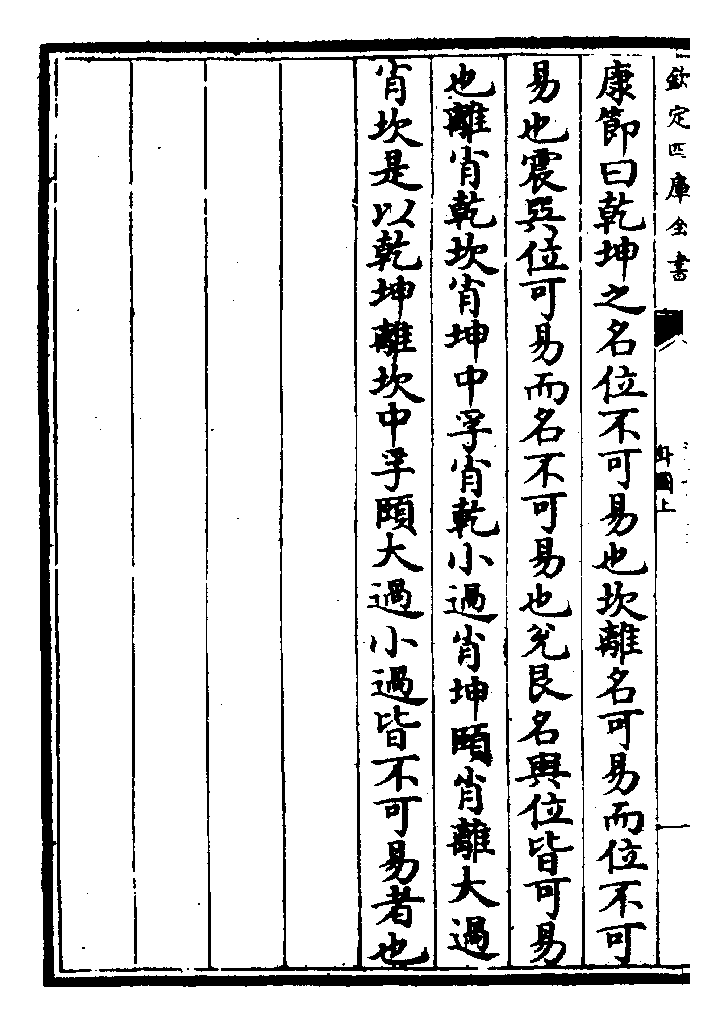 欽定四庫全書
卦圖上
康節曰乾坤之名位不可易也坎離名可易而位不可
易也震巽位可易而名不可易也兌艮名與位皆可易
也離肖乾坎肖坤中孚肖乾小過肖坤頤肖離大過
肖坎是以乾坤離坎中孚頤大過小過皆不可易者也